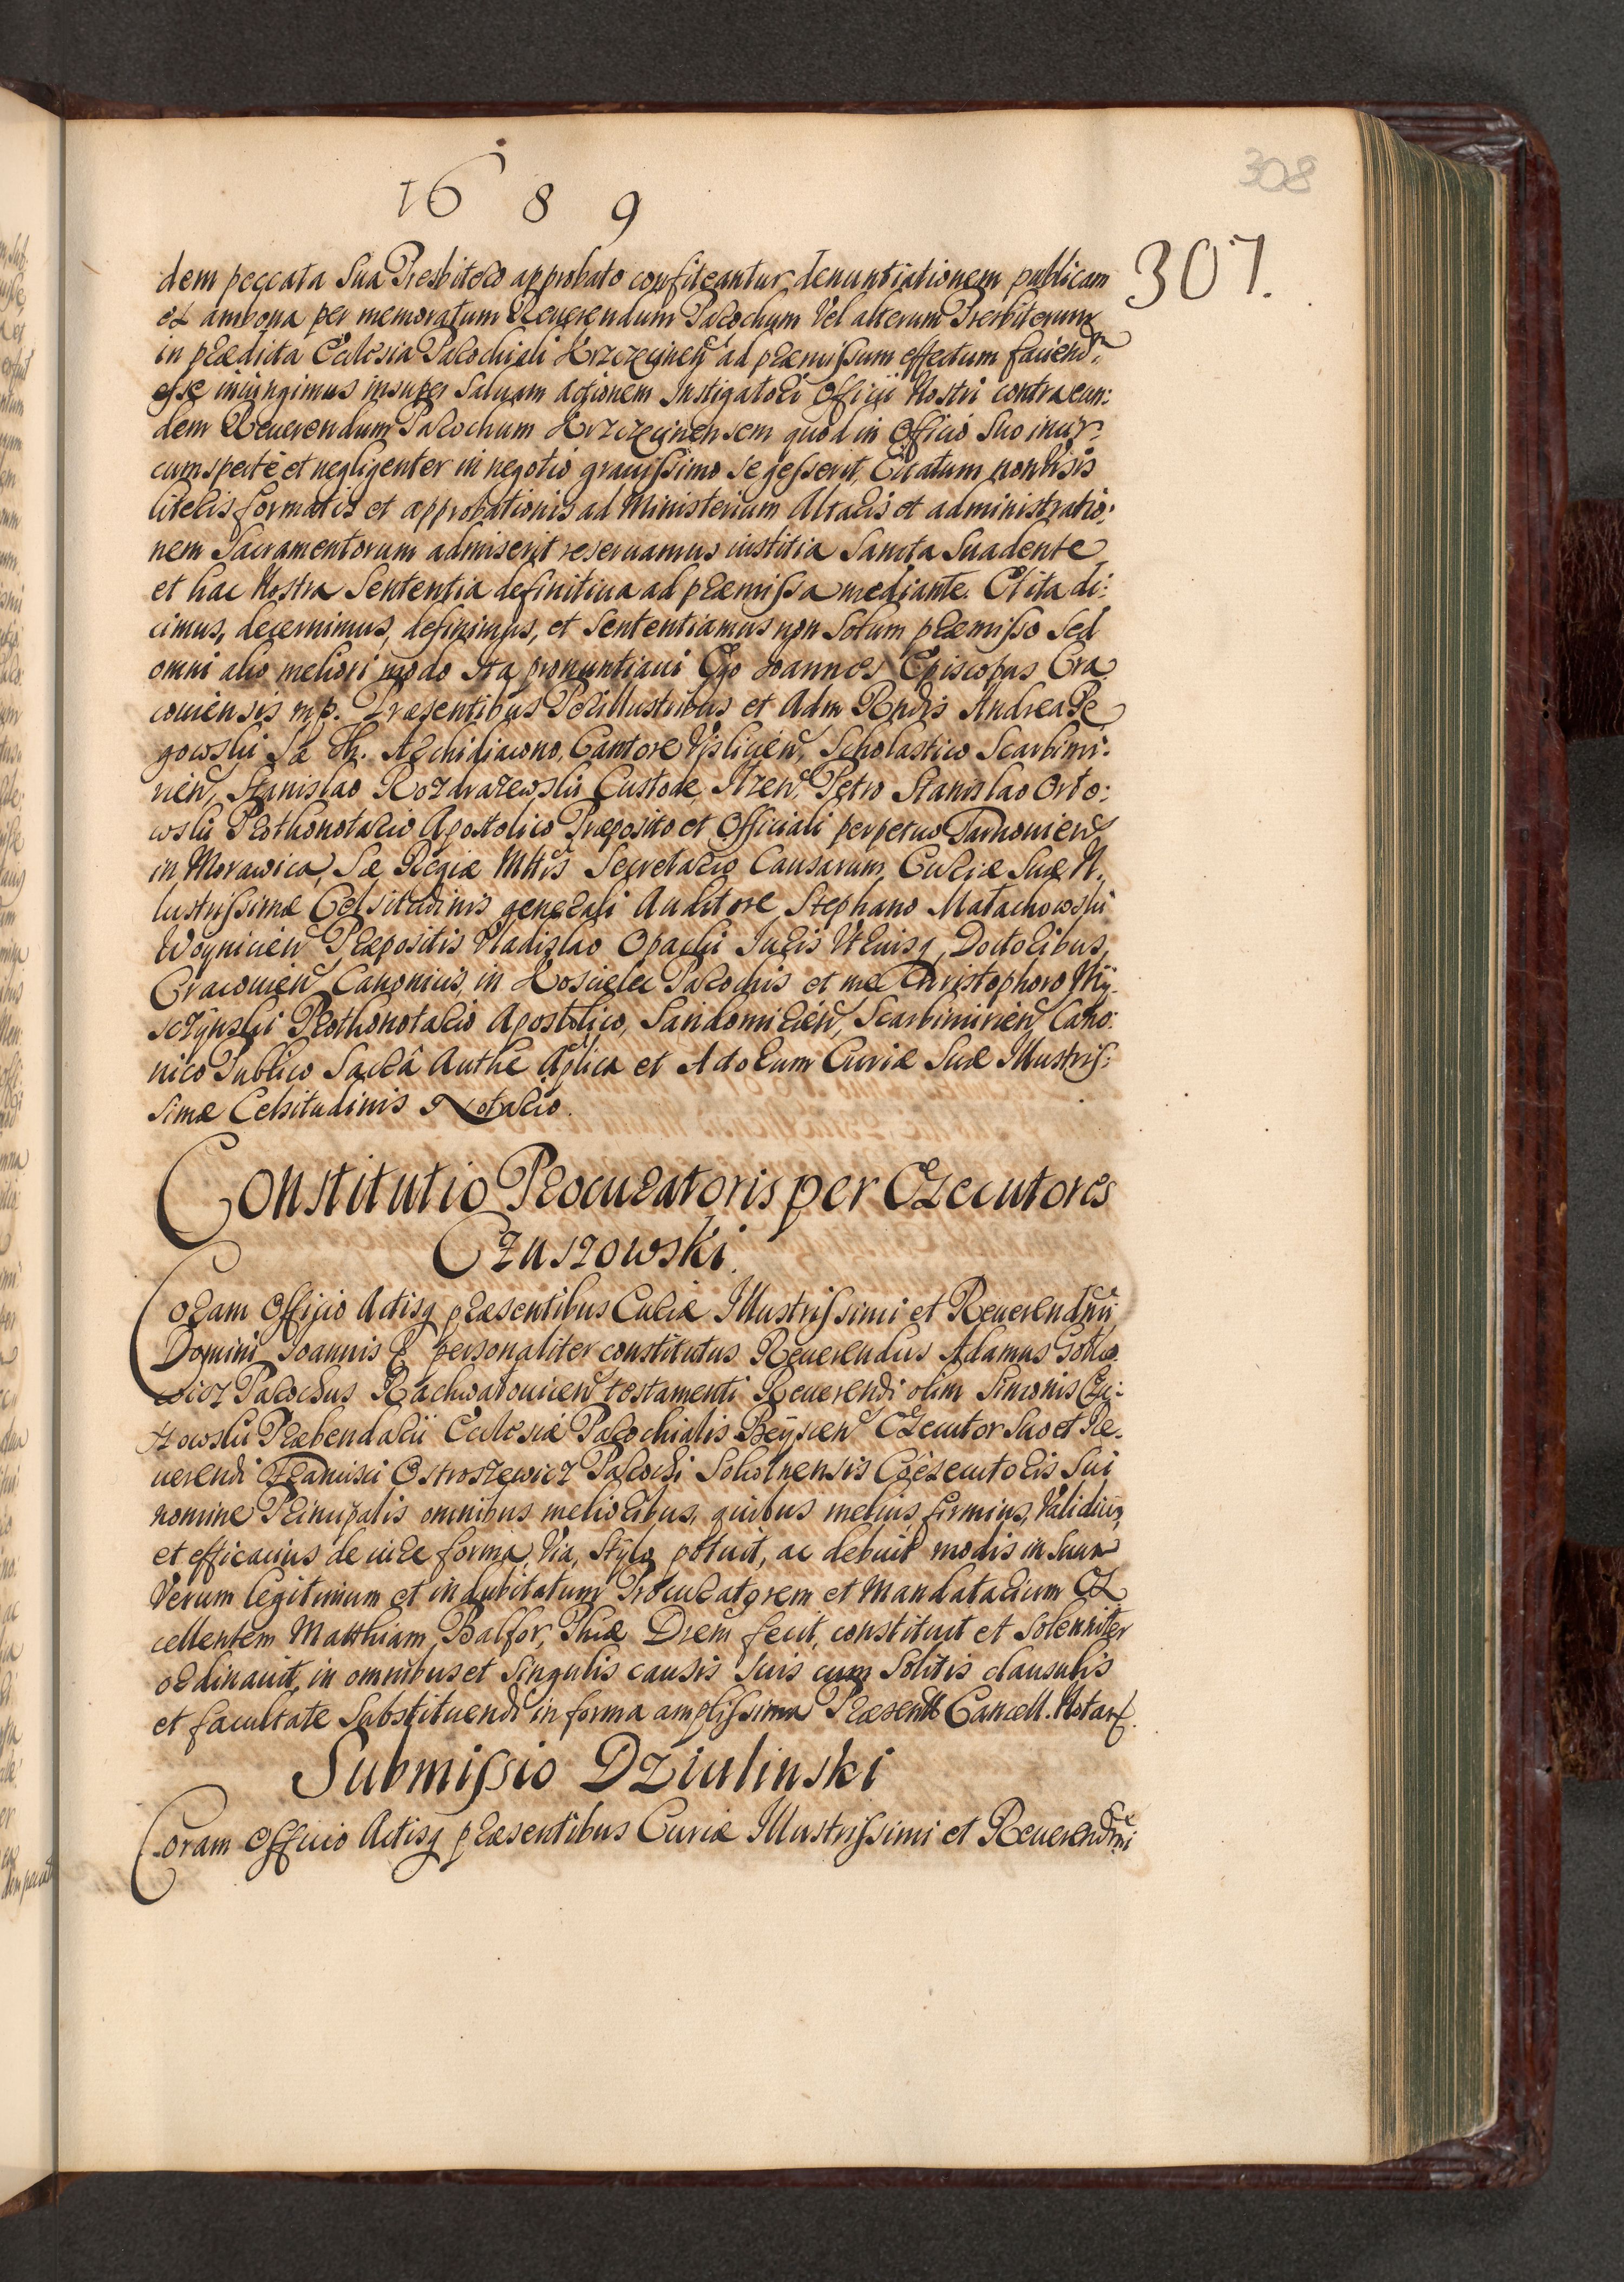 308
1689
307.
dem peccata Sua Presbitero approbato confiteantur denuntiationem publicam
ex ambona per memoratum Reuerendum Parochum Vel alterum Presbiterum
in prædicta Ecclesia Parochiali Krzczęcinen ad præmissum effectum faciend
esse iniungimus insuper Saluam actionem Instigatori Officii Nostri contra eun:
dem Reuerendum Parochum Krzczęcinensem quod in Officio Suo incir:
cumspecte et negligenter in negotio grauissimo se gesserit, Curatum non Visis
literis formatis et approbationis ad Ministerium Altaris et administratio:
nem Sacramentorum admiserit reseruamus iustitia Sancta Suadente
et hac Nostra Sententia definitiua ad præmissa mediante. Et ita di:
cimus, decernimus, definimus, et Sententiamus non Solum præmisso Sed
omni alio meliori modo Ita pronuntiaui Ego Joannes Episcopus Cra
couiensis mp. Præsentibus Perillustribus et Adm Rndis Andrea Pe
gowski Sæ Th. Archidiacono, Cantore Visliciēn, Scholastico Scarbimi:
riēn, Stanislao Rozdrazewski Custode, Petro Stanislao Orło:
wski Prothonotario Apostolico Præposito et Officiali perpetuo Tarnouien
in Morawica, Sæ Regiæ Mttis Secretario Causarum, Curiæ Suæ Il.
lustrissimæ Celsitudinis generali Auditore Stephano Małachowski
Woyniciēn Præpositis Vladislao Opacki Iuris Vtriusq Doctoribus,
Cracouiēn Canonicis, in Koscielec Parochis et me Christophoro Wÿ
sczÿnski Prothonotario Apostolico, Sandomiriēn, Scarbimiriēn Cano:
nico Publico Sacrâ Authe Aplica et Actorum Curiæ Suæ Illustris:
simæ Celsitudinis Notario.
Constitutio Procuratoris per Executores
Czuszowski.
Coram Officio Actisq præsentibus Curiæ Illustrissimi et Reuerendmi
Domini Joannis & personaliter constitutus Reuerendus Adamus
wicz Parochus Rachwałouicen testamenti Reuerendi olim Simonis Czu:
szowski Præbendarii Ecclesiæ Parochialis Beÿscen Executor Suo et Re.
uerendi Francisci Ostroszewicz Parochi Sokolnensis Coexecutoris Sui
nomine Principalis omnibus melioribus, quibus melius, firmius, Validius,
et efficacius de iure forma, Via, Stÿlo potuit, ac debuit modis in Suum
Verum legitimum et indubitatum Procuratorem et Mandatarium Ex
cellentem Matthiam Balfor, Phiæ Drem fecit, constituit et Solenniter
ordinauit, in omnibus et Singulis causis Suis cum Solitis clausulis
et facultate Substituendi in forma amplissima Præsentt Cancell. Notarÿ.
Submissio Dziulinski
Coram Officio Actisq præsentibus Curiæ Illustrissimi et Reuerendmi